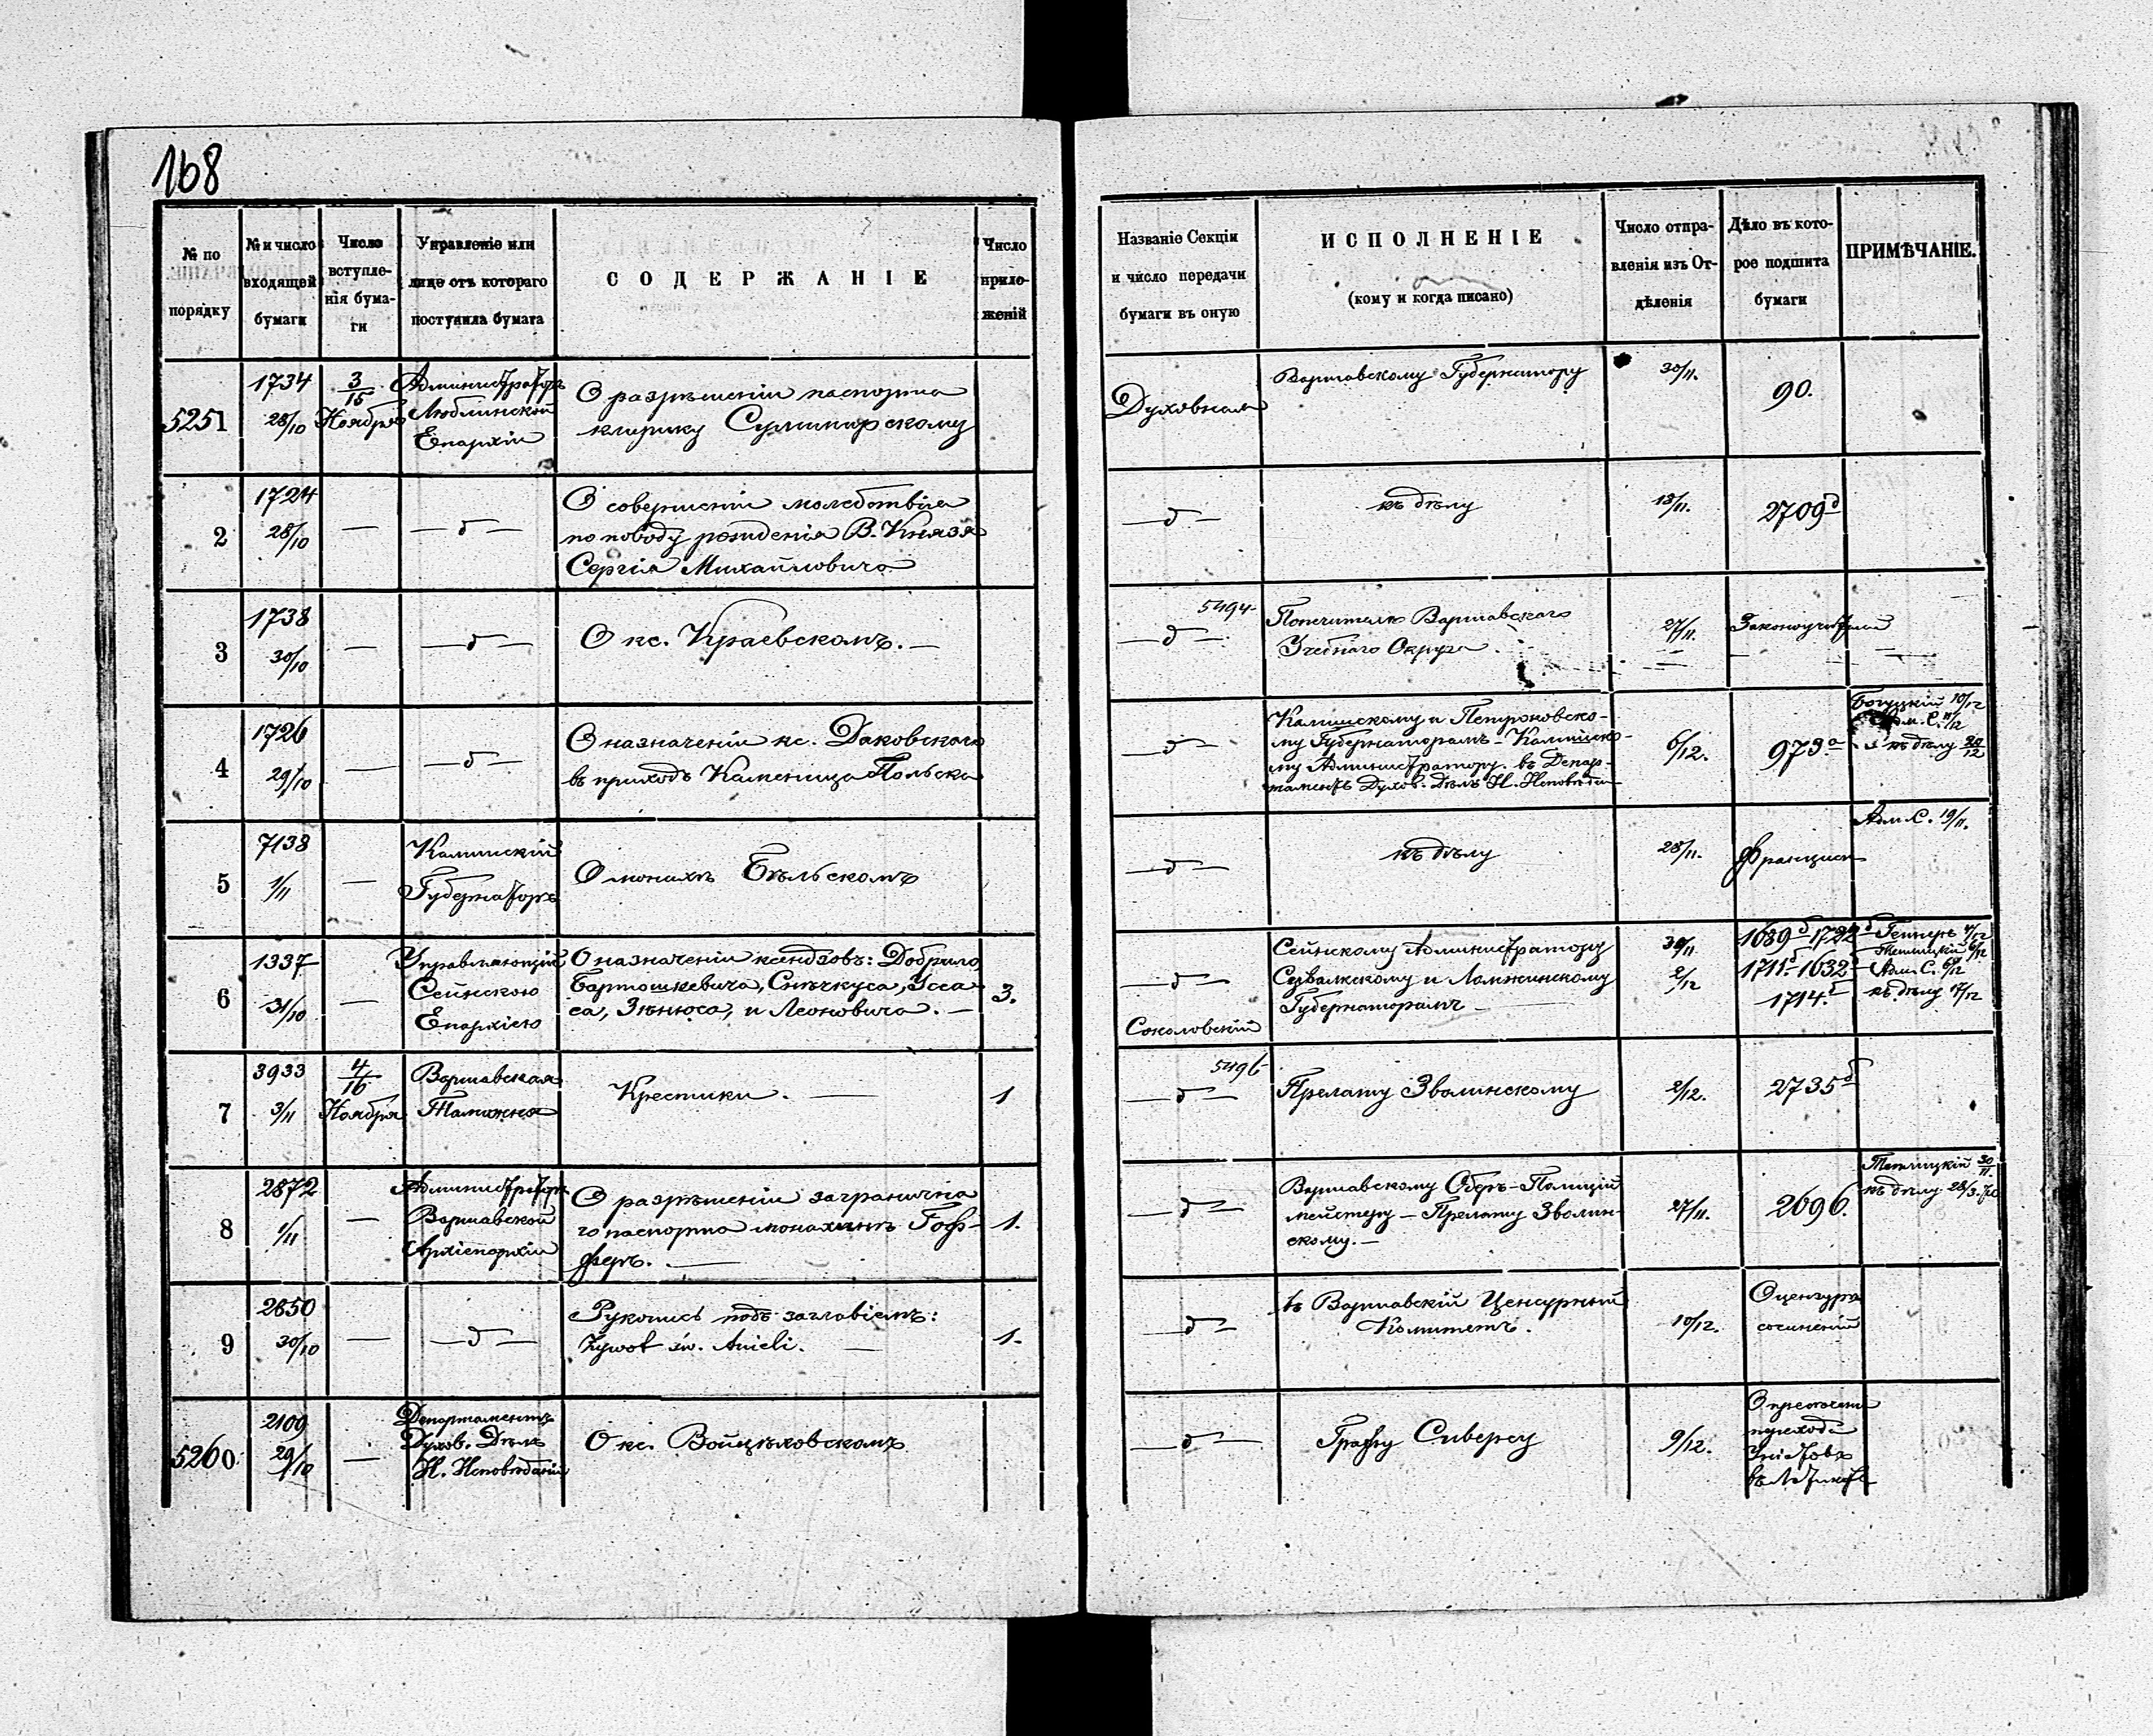 168
№ по порядку
№ и число входящей бумаги
Число вступленія бумаги
Управленіе или лице отъ котораго поступила бумага
СОДЕРЖАНІЕ
Число приложеній
Названіе Секціи и число передачи бумаги въ оную
ИСПОЛНЕНІЕ
(кому и когда писано)
Число отправленія изъ Отдѣленія
Дѣло въ которое подшита бумаги
ПРИМѢЧАНІЕ.
5251
1734
28/10
3/15
Ноября
Администраторъ
Люблинской
Епархіи
О разрѣшеніи паспорта
клирику
Духовная
Варшавскому Губернатору
30/11.
90.
2
1724
28/10
—
—д—
О совершеніи молебствія
по поводу рожденія В. Князя
Сергія Михайловича
—д—
къ дѣлу
18/11.
2709 д
3
1738
30/10
—
—д—
О кс. Краевскомъ. —
5494
—д—
Попечителю Варшавскаго
Учебнаго Округа.
27/11.
Законоучителей
4
1726
29/10
—
—д—
О назначеніи кс. Даковскаго
въ приходъ Каменица Польска
—д—
Калишскому и Петроковско-
му Губернаторамъ – Калишско-
му Администратору. въ Депар-
таментъ Духов. Дѣлъ И. Исповѣда
6/12.
973 а
Богуцкій 10/12
Адм. С. 11/12
къ дѣлу 20/12
5
7138
1/11
—
Калишскій
Губернаторъ
О монахѣ Бѣльскомъ
—д—
къ дѣлу
28/11.
Францискан
Адм. С. 19/11.
6
1337
31/10
—
Управляющій
Сейнскою
Епархіею
О назначеніи ксендзовъ: Добрило,
Бартошкевича, Снѣчкуса, Усса-
са, Зѣнюса, и Леоновича. —
3.
—д—
Соколовскій
Сейнскому Администратору
Сувалкскому и Ломжинскому
Губернаторамъ —
30/11
2/12
1689 б 1722 б
1711 б 1632
1714 б
Гепнеръ 4/12
Адм. С. 6/12
къ дѣлу 17/12
7
3933
3/11
4/16
Ноября
Варшавская
Таможня
Крестики. —
1
5496
—д—
Прелату Зволинскому
2/12.
2735 б
8
2872
1/11
—
Администраторъ
Варшавской
Архіепархіи
О разрѣшеніи загранична
го паспорта монахинѣ Гоф-
феръ. —
1.
—д—
Варшавскому Оберъ-Полицій
мейстеру – Прелату Зволин-
скому. —
27/11.
2696.
30/11
къ дѣлу 28/3.70
9
2850
30/10
—
—д—
Рукопись подъ заглавіемъ:
Żywot św. Anieli. —
1.
—д—
въ Варшавскій Цензурный
Комитетъ.
10/12.
О цензурѣ
сочиненій
5260
2109
29/10
—
Департаментъ
Духов. Дѣлъ
И. Исповѣданій
О кс. Войцѣховскомъ
—д—
Графу Сиверсу
9/12.
перехода
Уніатовъ